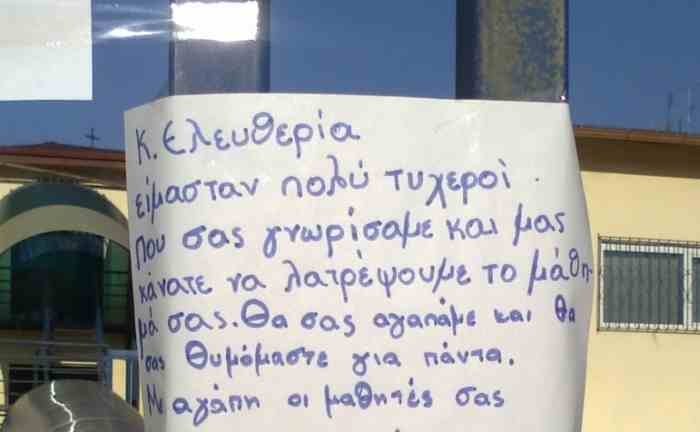 Κ. Ελευθερία
είμασταν πολύ τυχεροί.
που σας γνωρίσαμε και μας
κάνατε να λατρέψουμε το μάθη-
μά σας. Θα σας αγαπάμε και θα
σας θυμόμαστε για πάντα.
Με αγάπη οι μαθητές σας